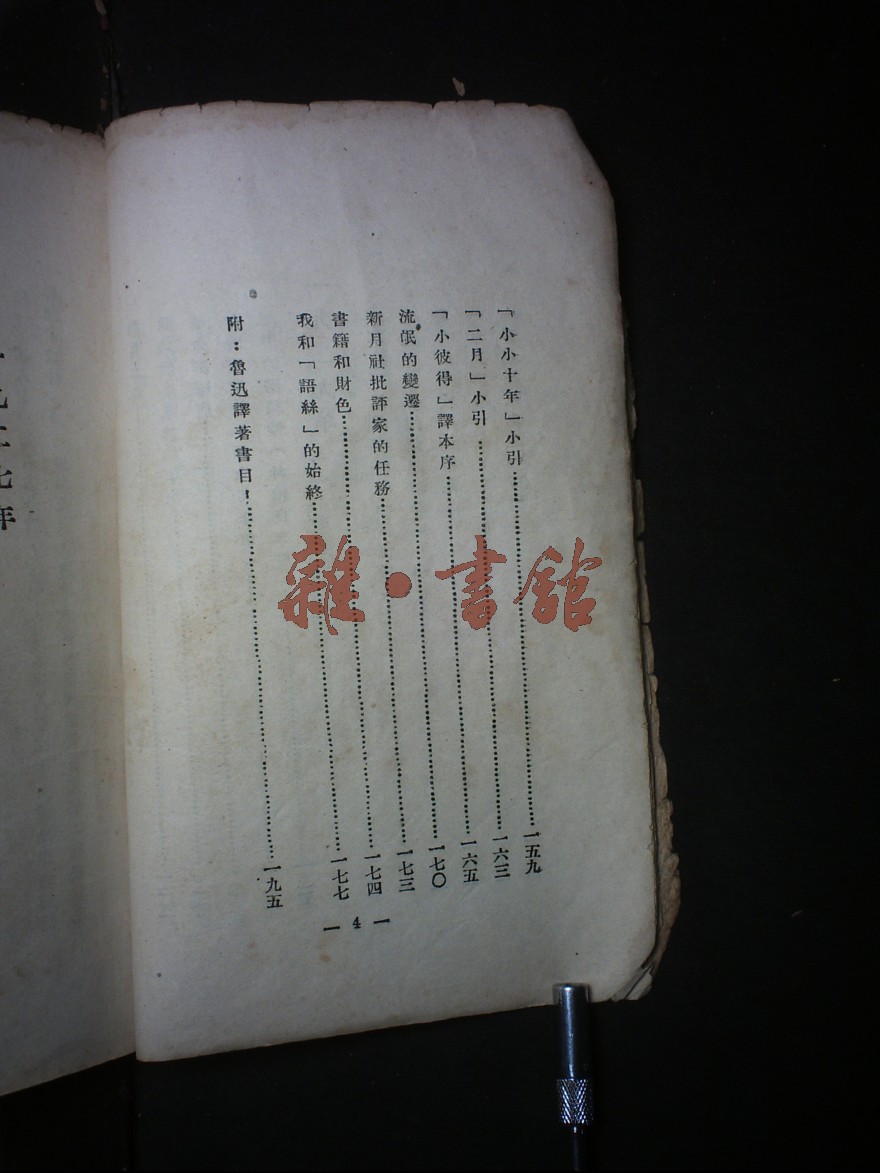 「小小十年」小引……一五九
「二月」小引……一六三
「小彼得」譯本序……一六五
流氓的變遷……一七〇
新月社批評家的任務……一七三
書籍和財色……一七四
我和「語絲」的始終……一七七
附：魯迅譯著書目……一九五
— 4 —
雜·書館